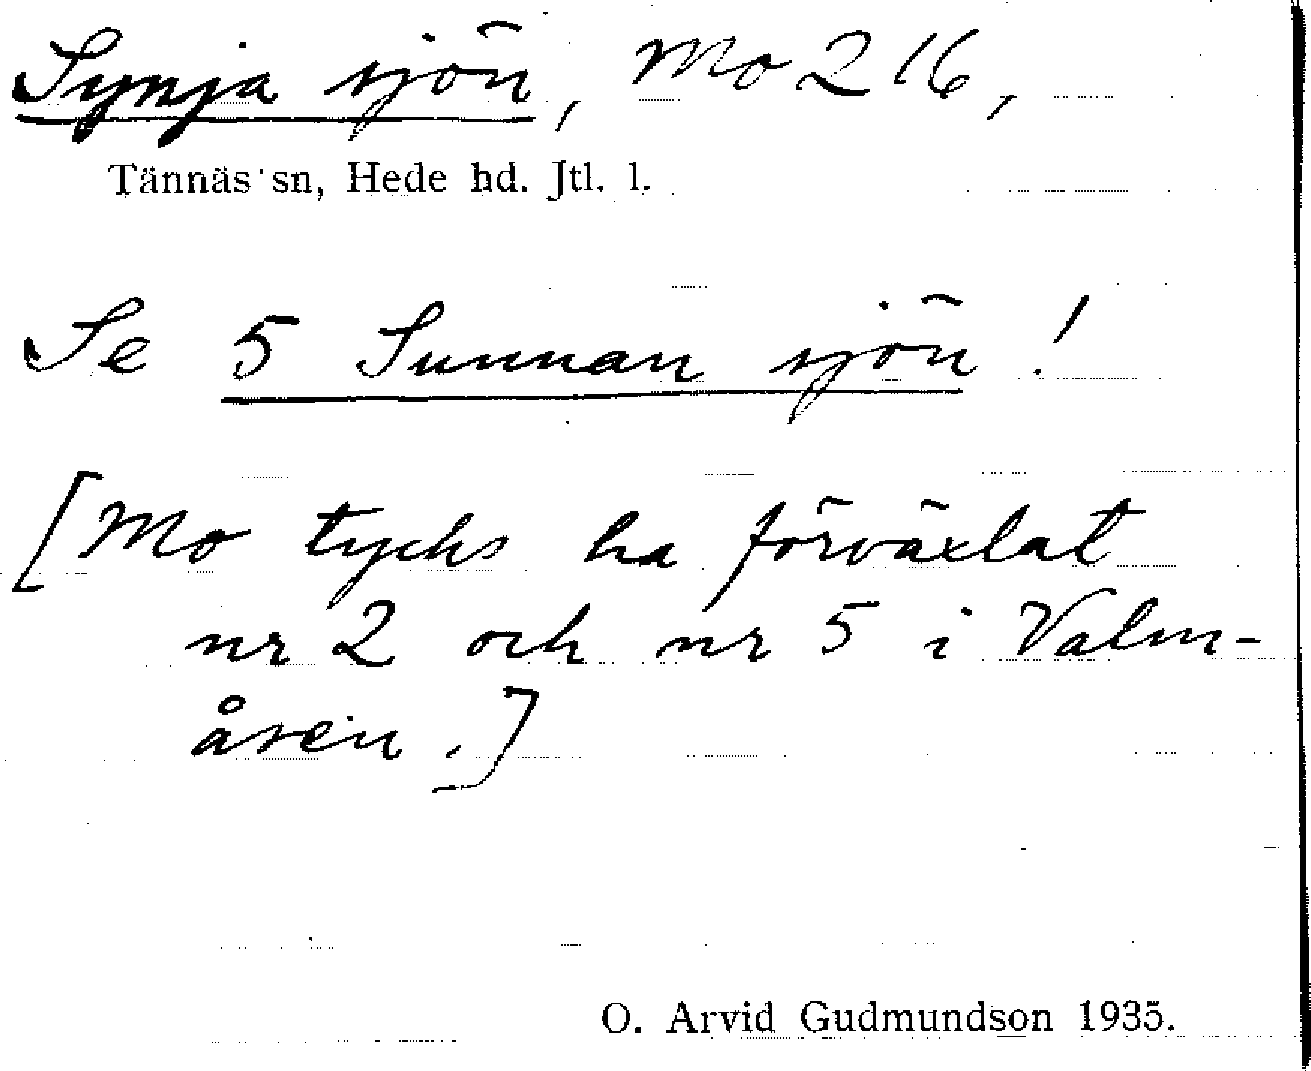 Synja sjön, Mo 216,
Tännäs sn, Hede hd. Jtl. l.
Se 5 Sunnan sjön!
[Mo tycks ha förväxlat
nr 2 och nr 5 i Valm-
åsen.]
O. Arvid Gudmundson 1935.